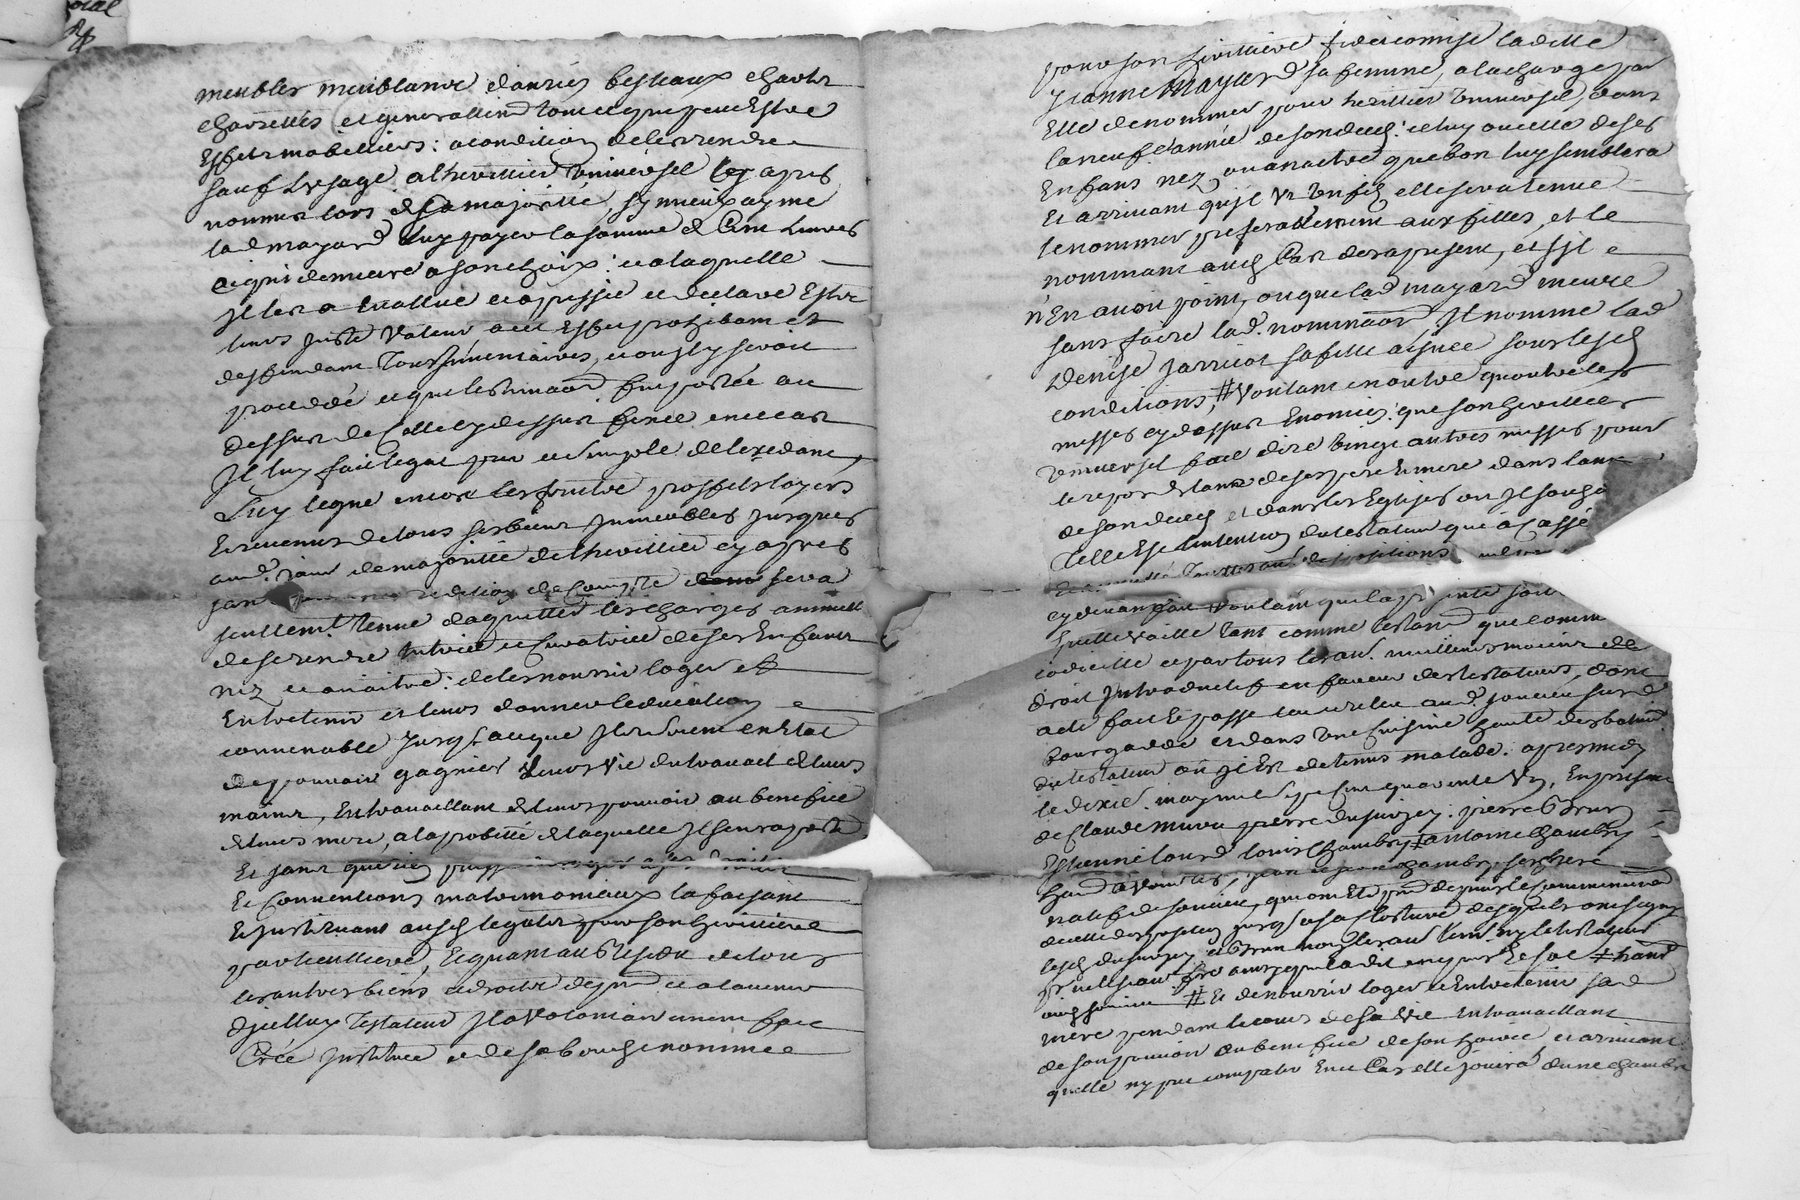 meubles meublants danrées bestiaux charts
charrettes et generallemt tout ce que peut Estre
Effets mobiliers: a condition de les rendre
sauf Lusage a lheritier universel cy apres
nommer lors de sa majorité, sy mieux ayme
lad mayard luy payer la somme de Cent Livres
a qui demeure a son choix: et a laquelle
Il les a evallué et apretié et declare Estre
leurs juste valeur avec Effet prohibant et
deffendant Tous Inventaires, et ou Il y seroit
procedé et que lestimaon fut portée au
dessus de Celle cy dessus fixée en ce cas
Il luy fait legat pur et simple de lexedant,
Luy legue encore les fruits proffits loyers
Et revenus de tous ses biens Immeubles jusques
aud. jour de majorité de lheritier cy apres
sans redition de Compte sera
seullemt Tenue daquitter les charges annuelles
de se rendre tutrice et Curatrice de ses Enfants
nez et a naitre: de les nourrir loger et
Entretenir et leurs donner leducation
convenable jusqs a ce que Ils soient en Etat
de pouvoir gagner Leurs vie du travail de leurs
mains, En travaillant de leurs pouvoir au benefice
de leurs mere, a la probité de laquelle Il sen raporte
Et sans que rien puisse a ses droits
Et Conventions matrimoniaux la faisant
Et Instituant aussy legats pour son heritiere
particulliere, Et quant au Residu de tous
les autres biens et droits dept et a lavenir
dicelluy Testateur Il a volontairement fait
Créé Institué et de sa bouche nommée
pour son heritiere fideicomise ladite
Jeanne Mayard sa femme, a la charge par
Elle de nommer pour heritier universel, dans
la neufe année de son deces: celuy ou celle de ses
Enfans nez ou a naitre que bon luy semblera
Et arrivant quil y Ut un fils elle sera tenue
le nommer preferablement aux filles, et le
nommant audt Cas des a present, et sil
n'En avoit point, ou que lad mayard meure
sans faire lad. nominaon, Il nomme lad
Denise Jarricot sa fille aisnée sous les sd
conditions, # Voulant en outre quoutre les
messes cy dessus Enoncées: que son heritier
universel face dire vingt autres messes pour
le repos de lame de ses pere Et mere dans lannée
de son deces et dans les Eglises ou Il
Telle Est Lintention du testateur que a Cassé
cy devant fait voulant que la presente soit
quelle vaille tant comme testamt que comme
codicille et par tous les aus meilleurs moiens de
droit Introductif en faveur des testateurs, dont
acte fait Et passé leu et releu aud. joncieu sur
bourgade et dans une Cuisine haute des batimts
du testateur ou Il Est detenus malade: apres midy
le dixie. may mil sept cent quarente Un, En presance
de Claude muron pierre dujurjey: pierre Brun
Estienne lourd louis chambry, # antoine chambry
natif de joncieu, qui ont Eté pnt depuis le Commencemt
de cette disposition jusqs a sa Closture desquels ont signé
lesd dujurjey et Brun non les aus temt. ny le testateur
# Et de nourrir loger et Entretenir sad
mere pendant le cours de sa vie En travaillant
de son pouvoir au benefice de son hoirie, et arrivant
quelle ny put compatir En ce Cas elle jouira dune chambre